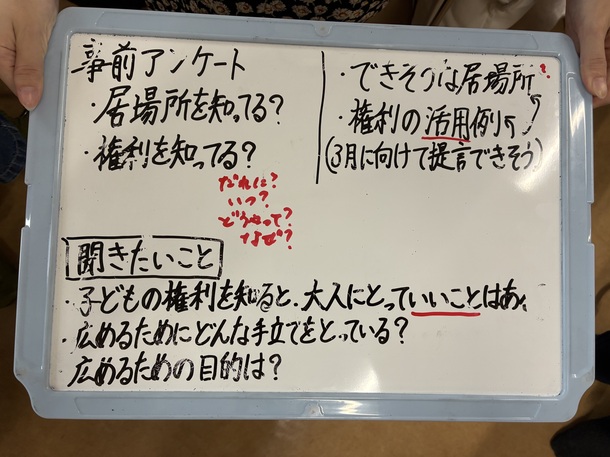 事前アンケート
・居場所を知ってる?
・権利を知ってる?
だれに?
いつ?
どうやって?
なぜ?
・できそうな居場所?
・権利の活用例
(3月に向けて提言できそう)
聞きたいこと
・子どもの権利を知ると、大人にとっていいことはあ
・広めるためにどんな手立てをとっている?
広めるための目的は?